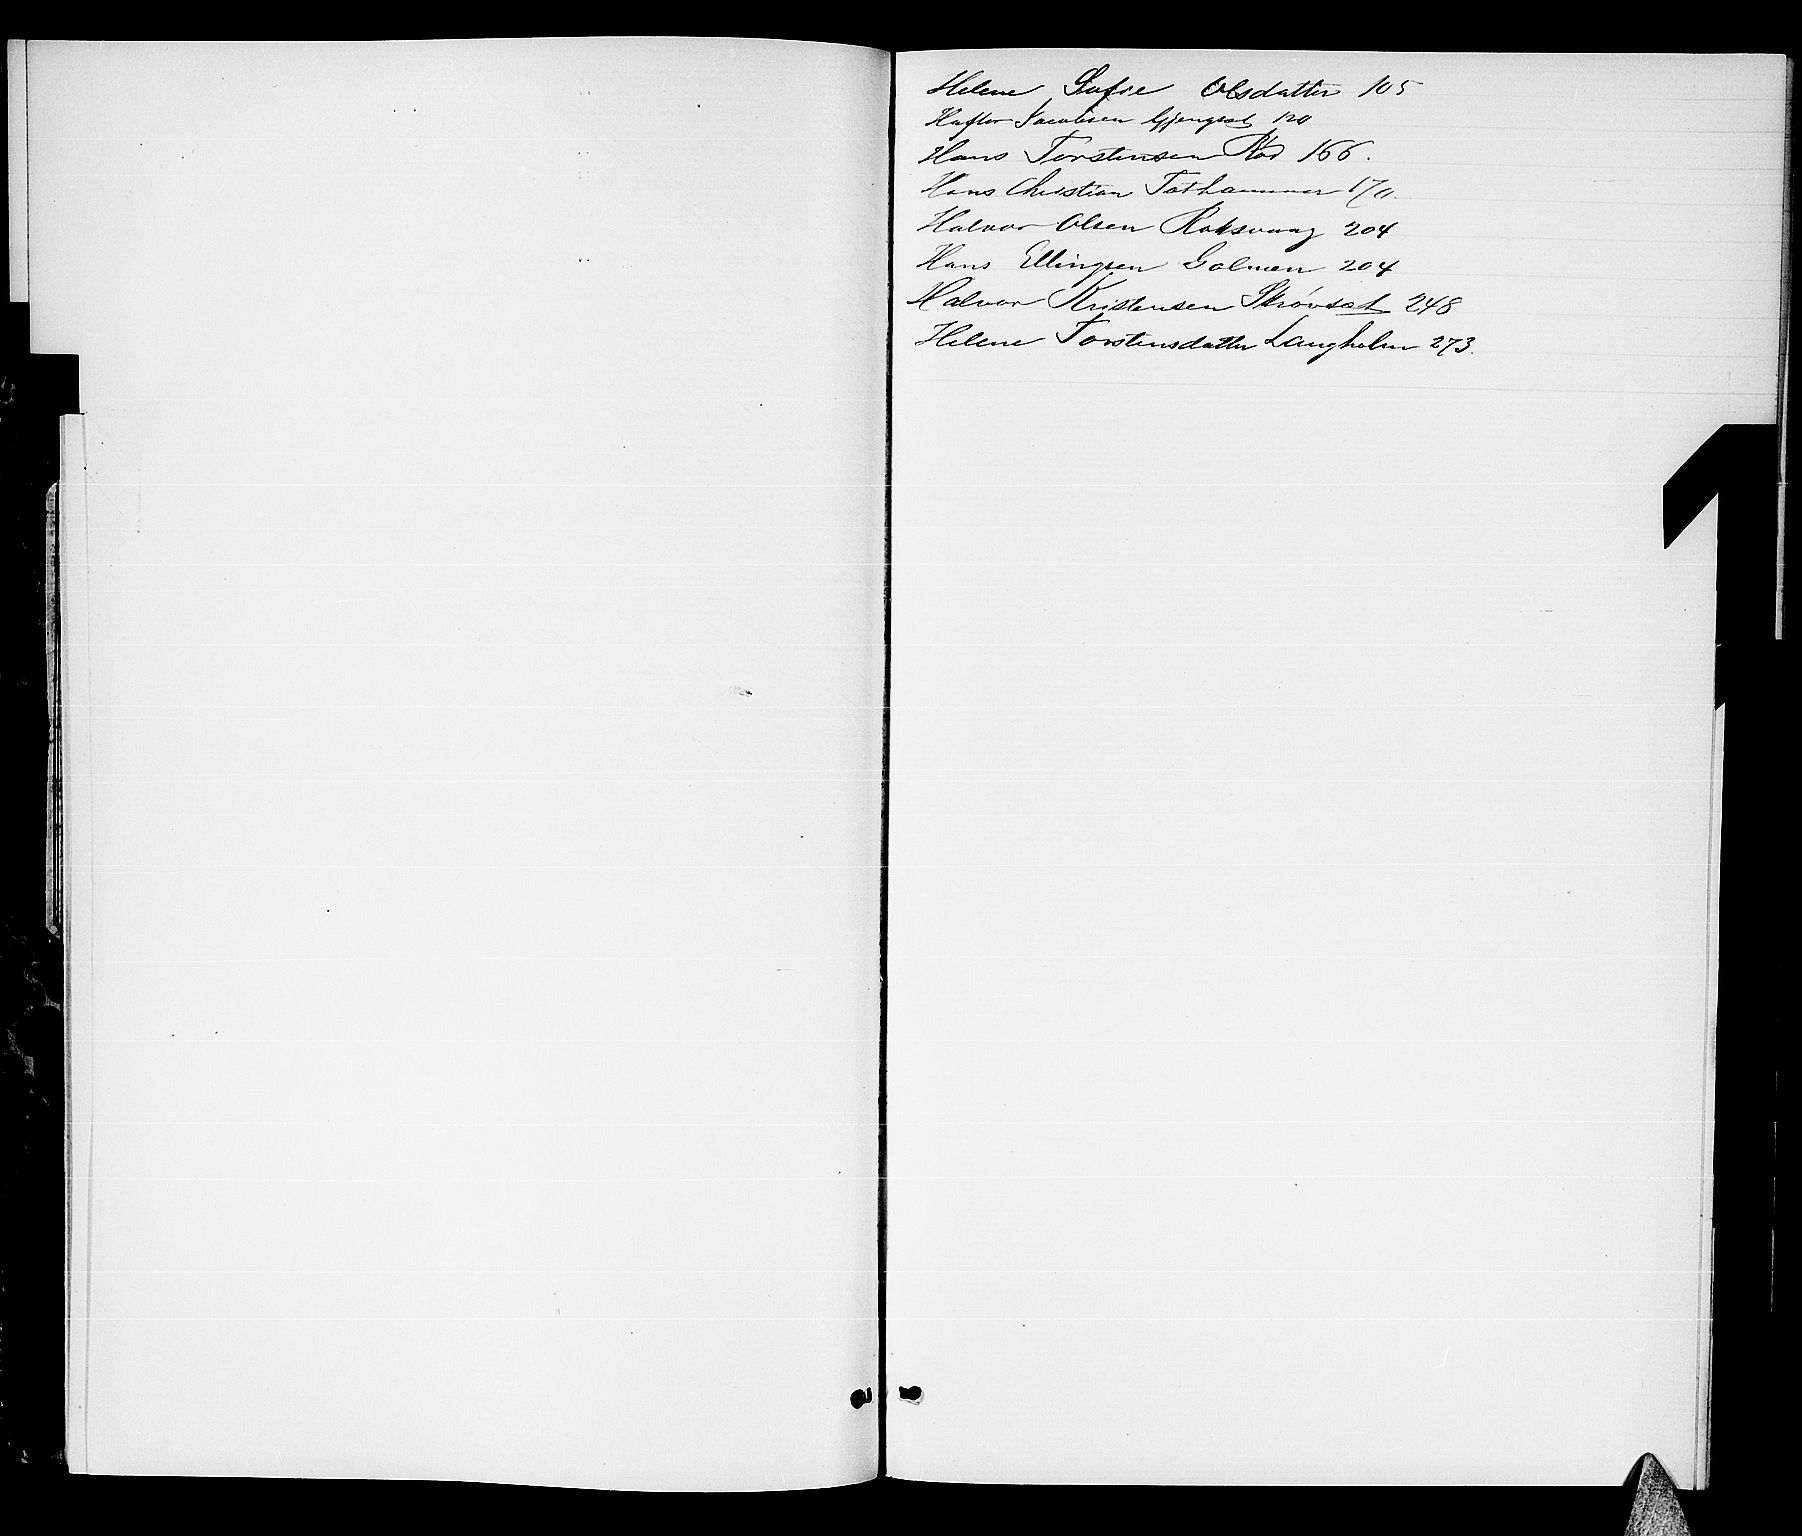 Helene Gufie Olsdatter 105
Haftor Jacobsen Gjengsæt 120
Hans Torstensen Rød 166.
Hans Christian Tøthammer 170.
Halvor Olsen Roksvaag 204
Hans Ellingsen Solmen 204
Halvor Kristensen Strøvsæt 248
Helene Torstensdatter Langholm 273.